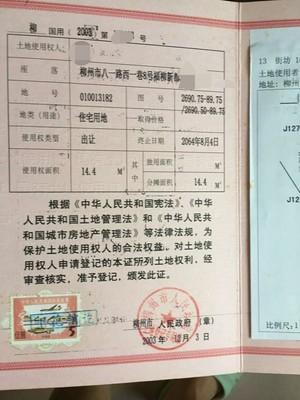 柳 国用( 2003 )第 号
土地使用权人
座 落 柳州市八一路西一巷8号福柳新都
地 号 010013182 图 号 2690.75-89.75
/2690.50-89.75
地类(用途) 住宅用地 取得价格
使用权类型 出让 终止日期 2064年8月4日
使用权面积 14.4 M² 其中 独用面积 M²
分摊面积 14.4 M²
根据《中华人民共和国宪法》、《中华
人民共和国土地管理法》和《中华人民共
和国城市房地产管理法》等法律法规,为
保护土地使用权人的合法权益,对土地使
用权人申请登记的本证所列土地权利,经
审查核实,准予登记,颁发此证。
柳州市 人民政府(章)
2003 年 月 3 日
13 街坊
土地使用者
J127
比例尺:1